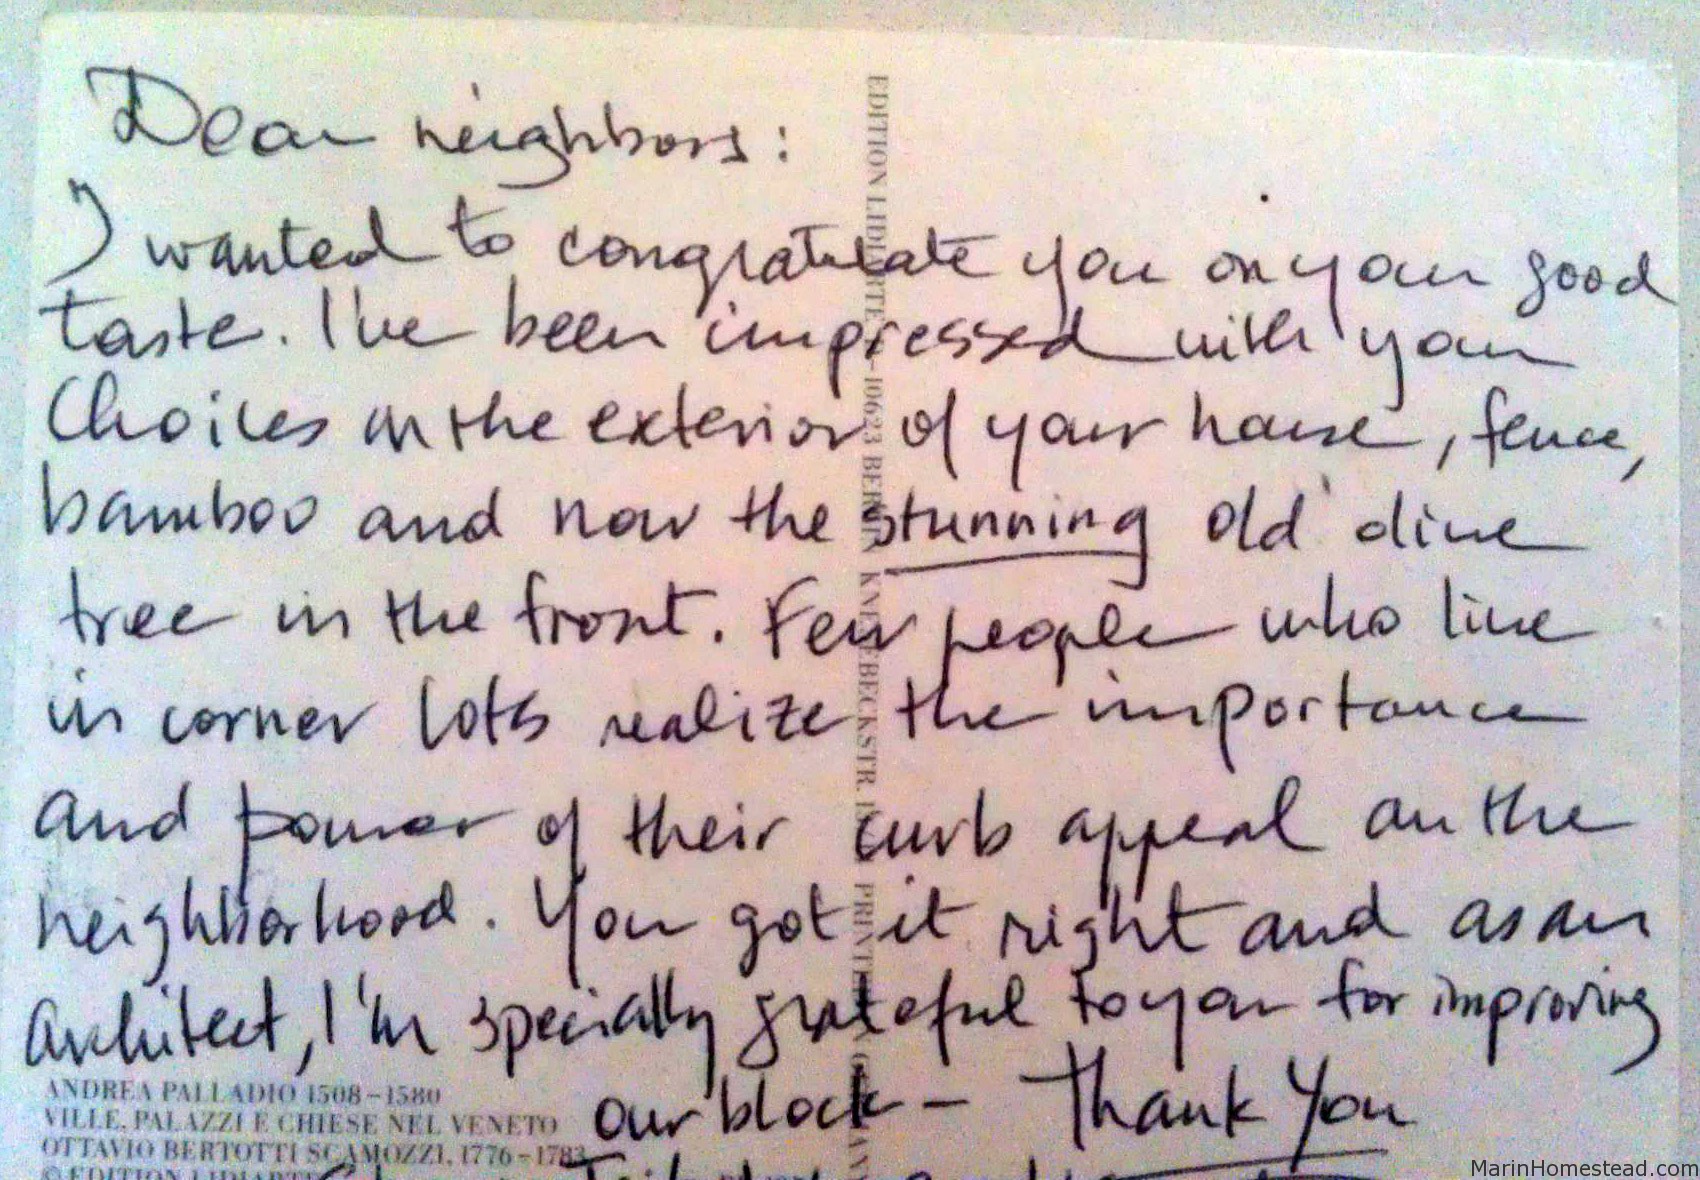 Dear neighbors:
I wanted to congratulate you on your good
taste. I've been impressed with your
Choices in the exterior of your house, fence,
bamboo and now the stunning old olive
tree in the front. Few people who live
in corner lots realize the importance
and power of their curb appeal on the
neighborhood. You got it right and as an
architect, I'm specially grateful to you for improving
our block – Thank You
ANDREA PALLADIO 1508–1580
VILLE, PALAZZI E CHIESE NEL VENETO
OTTAVIO BERTOTTI SCAMOZZI, 1776–1783
© EDITION LIDIARTE
EDITION LIDIARTE D-10623 BERLIN KNESEBECKSTR. PRINTED GERMANY
MarinHomestead.com